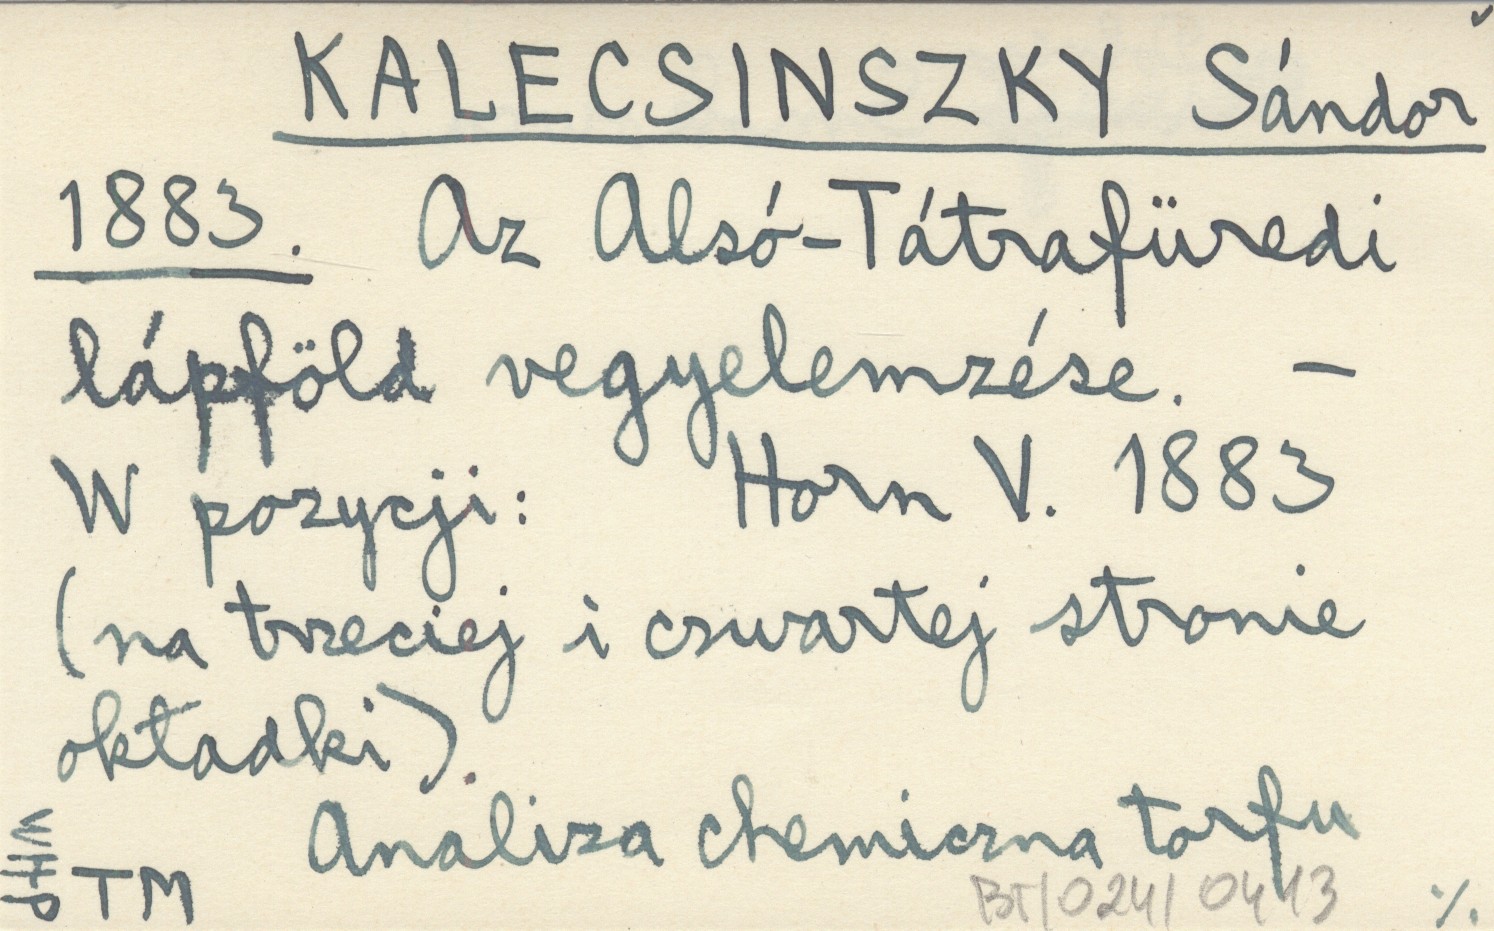 KALECSINSZKY Sándor
1883. Az Alsó-Tátrafüredi
lápföld vegyelemzése. –
W pozycji: Horn V. 1883
(na trzeciej i czwartej stronie
okładki).
Analiza chemiczna torfu
WHP
TM
BT/024/0413
./.